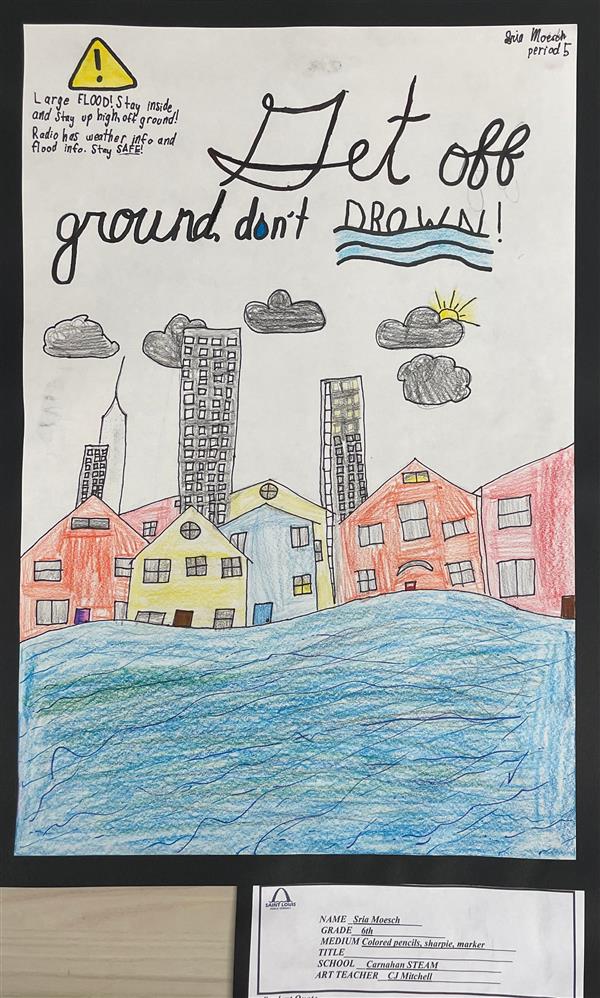 Sria Moesch
period 5
!
Large FLOOD! Stay inside
and stay up high, off ground!
Radio has weather info and
flood info. Stay SAFE!
Get off
ground, don't DROWN!
SAINT LOUIS
NAME Sria Moesch
GRADE 6th
MEDIUM Colored pencils, sharpie, marker
TITLE
SCHOOL Carnahan STEAM
ART TEACHER CJ Mitchell